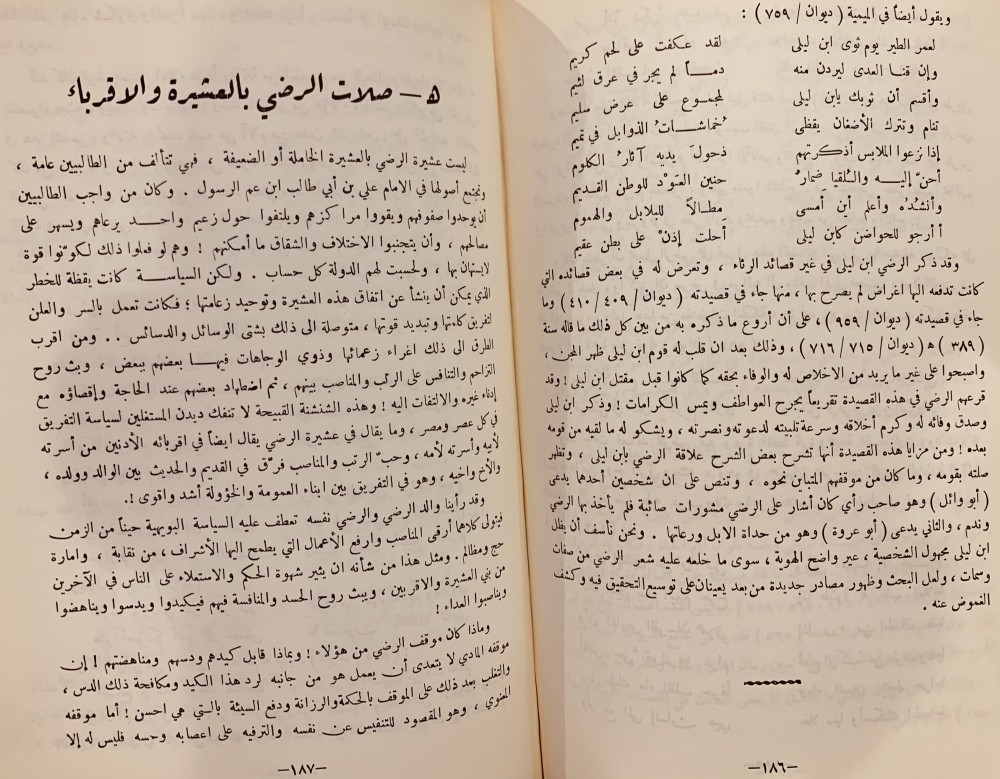 ويقول أيضاً في الميمية ( ديوان / ٧٥٩ ) :
لعمر الطير يوم ثوى ابن ليلى لقد عكفت على لحم كريم
وإن قنا العدى ليردن منه دمـاً لم يجر في عرق لئيم
وأقسم أن ثوبك يابن ليلى لمجموع على عرض سليم
تنام وتترك الأضغان يقظى خماشات الذوابل في تميم
إذا نزعوا الملابس أذكرتهم ذحول يديه آثار الكلوم
أحنّ إليـه واللقيا ضمارٌ حنين العَوْد للوطن القديم
وأنشدُه وأعلم أين أمسى مطالاً للبلابل والهموم
أ أرجو للحواضن كابن ليلى أحلت إذنْ على بطن عقيم
وقد ذكر الرضي ابن ليلى في غير قصائد الرثاء ، وتعرض له في بعض قصائده التي
كانت تدفعه اليها اغراض لم يصرح بها ، منها جاء في قصيدته ( ديوان / ٤٠٩ / ٤١٠ ) وما
جاء في قصيدته ( ديوان / ٩٥٩ ) ، على أن أروع ما ذكره به من بين كل ذلك ما قاله سنة
( ٣٨٩ ) ه ( ديوان / ٧١٥ / ٧١٦ ) ، وذلك بعد ان قلب له قوم ابن ليلى ظهر المجن ،
واصبحوا على غير ما يريد من الاخلاص له والوفاء بحقه كما كانوا قبل مقتل ابن ليلى ! وقد
قرعهم الرضي في هذه القصيدة تقريعاً يجرح العواطف ويمس الكرامات ! وذكر ابن ليلى
وصدق وفائه له وكرم أخلاقه وسرعة تلبيته لدعوته ونصرته ، ويشكو له ما لقيه من قومه
بعده ! ومن مزايا هذه القصيدة أنها تشرح بعض الشرح علاقة الرضي بابن ليلى ، وتظهر
صلته بقومه ، وما كان من موقفهم المتباين نحوه ، وتنص على ان شخصين أحدهما يدعى
( أبو وائل ) وهو صاحب رأي كان أشار على الرضي مشورات صائبة فلم يأخذ بها الرضي
وندم ، والثاني يدعى ( أبو عروة ) وهو من حداة الابل ورعاتها . ونحن نأسف أن يظل
ابن ليلى مجهول الشخصية ، غير واضح الهوية ، سوى ما خلعه عليه شعر الرضي من صفات
وسمات ، ولعل البحث وظهور مصادر جديدة من بعد يعينان على توسيع التحقيق فيه وكشف
الغموض عنه .
–١٨٦–
ه – صلات الرضي بالعشيرة والاقرباء
ليست عشيرة الرضي بالعشيرة الخاملة أو الضعيفة ، فهي تتألف من الطالبيين عامة ،
وتجتمع أصولها في الامام علي بن أبي طالب ابن عم الرسول . وكان من واجب الطالبيين
أن يوحدوا صفوفهم ويقووا مراكزهم ويلتفوا حول زعيم واحـد يرعاهم ويسهر على
مصالحهم ، وأن يتجنبوا الاختلاف والشقاق ما أمكنهم ! وهم لو فعلوا ذلك لكوّنوا قوة
لايستهان بها ، ولحسبت لهم الدولة كل حساب . ولكن السياسـة كانت يقظة للخطر
الذي يمكن أن ينشأ عن اتفاق هذه العشيرة وتوحيد زعامتها ؛ فكانت تعمل بالسر والعلن
لتفريق كلمتها وتبديد قوتها ، متوصلة الى ذلك بشتى الوسائل والدسائس .. ومن اقرب
الطرق الى ذلك اغراء زعمائها وذوي الوجاهات فيهـا بعضهم ببعض ، وبث روح
التزاحم والتنافس على الرتب والمناصب بينهم ، ثم اضطهاد بعضهم عند الحاجة وإقصاؤه مع
إدناء غيره والالتفات اليه ! وهذه الشنشنة القبيحة لا تنفك ديدن المستغلين لسياسة التفريق
في كل عصر ومصر ، وما يقال في عشيرة الرضي يقال ايضاً في اقربائه الأدنين من أسرته
لأبيه وأسرته لأمه ، وحبّ الرتب والمناصب فرّق في القديم والحديث بين الوالد وولده ،
والأخ واخيه ، وهو في التفريق بين ابناء العمومة والخؤولة أشد واقوى !.
وقد رأينا والد الرضي والرضي نفسه تعطف عليه السياسة البويهية حيناً من الزمن
فيتولى كلاهما أرقى المناصب وارفع الأعمال التي يطمح اليها الأشراف ، من نقابة ، وامارة
حج ومظالم . ومثل هذا من شأنه ان يثير شهوة الحكم والاستعلاء على الناس في الآخرين
من بني العشيرة والاقربين ، ويبث روح الحسد والمنافسة فيهم فيكيدوا ويدسوا ويناهضوا
ويناصبوا العداء !
وماذا كان موقف الرضي من هؤلاء ! وبماذا قابل كيدهم ودسهم ومناهضتهم ! إن
موقفه المادي لا يتعدى أن يعمل هو من جانبه لرد هذا الكيد ومكافحة ذلك الدس ،
والتغلب بعد ذلك على الموقف بالحكمة والرزانة ودفع السيئة بالتي هي احسن ! أما موقفه
المعنوي ، وهو المقصود للتنفيس عن نفسه والترفيه على اعصابه وحسه فليس له إلا
–١٨٧–